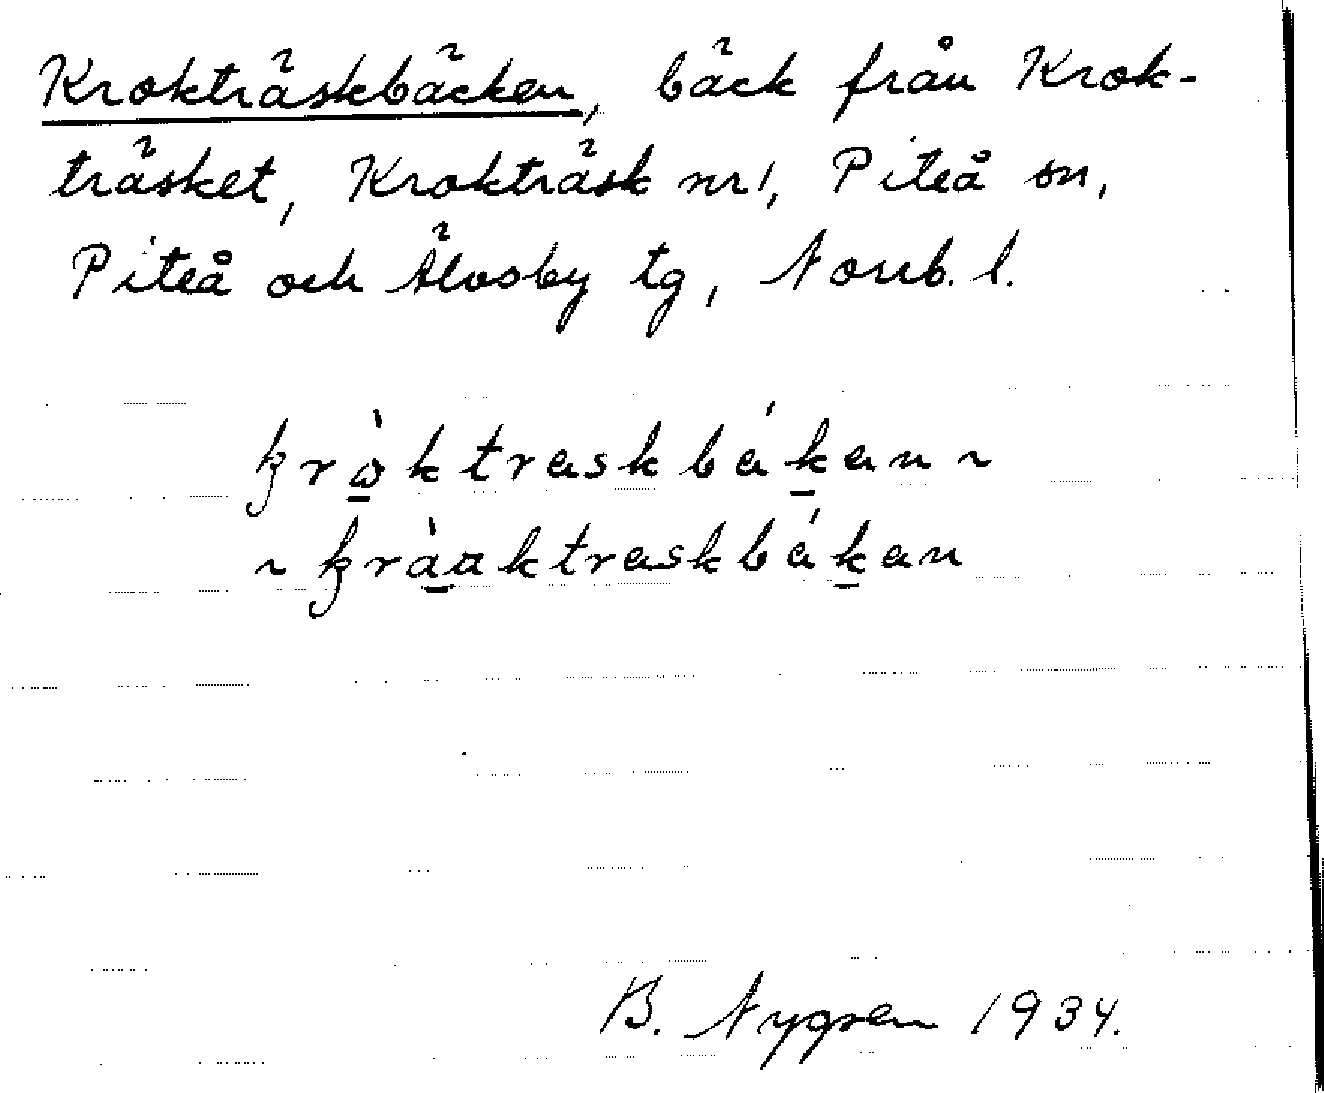 Krokträskbäcken, bäck från Krok-
träsket, Krokträsk nr 1, Piteå sn,
Piteå och Älvsby tg, Norrb. l.
kròktraskbákan ~
~ kràaktraskbákan
B. Nygren 1934.